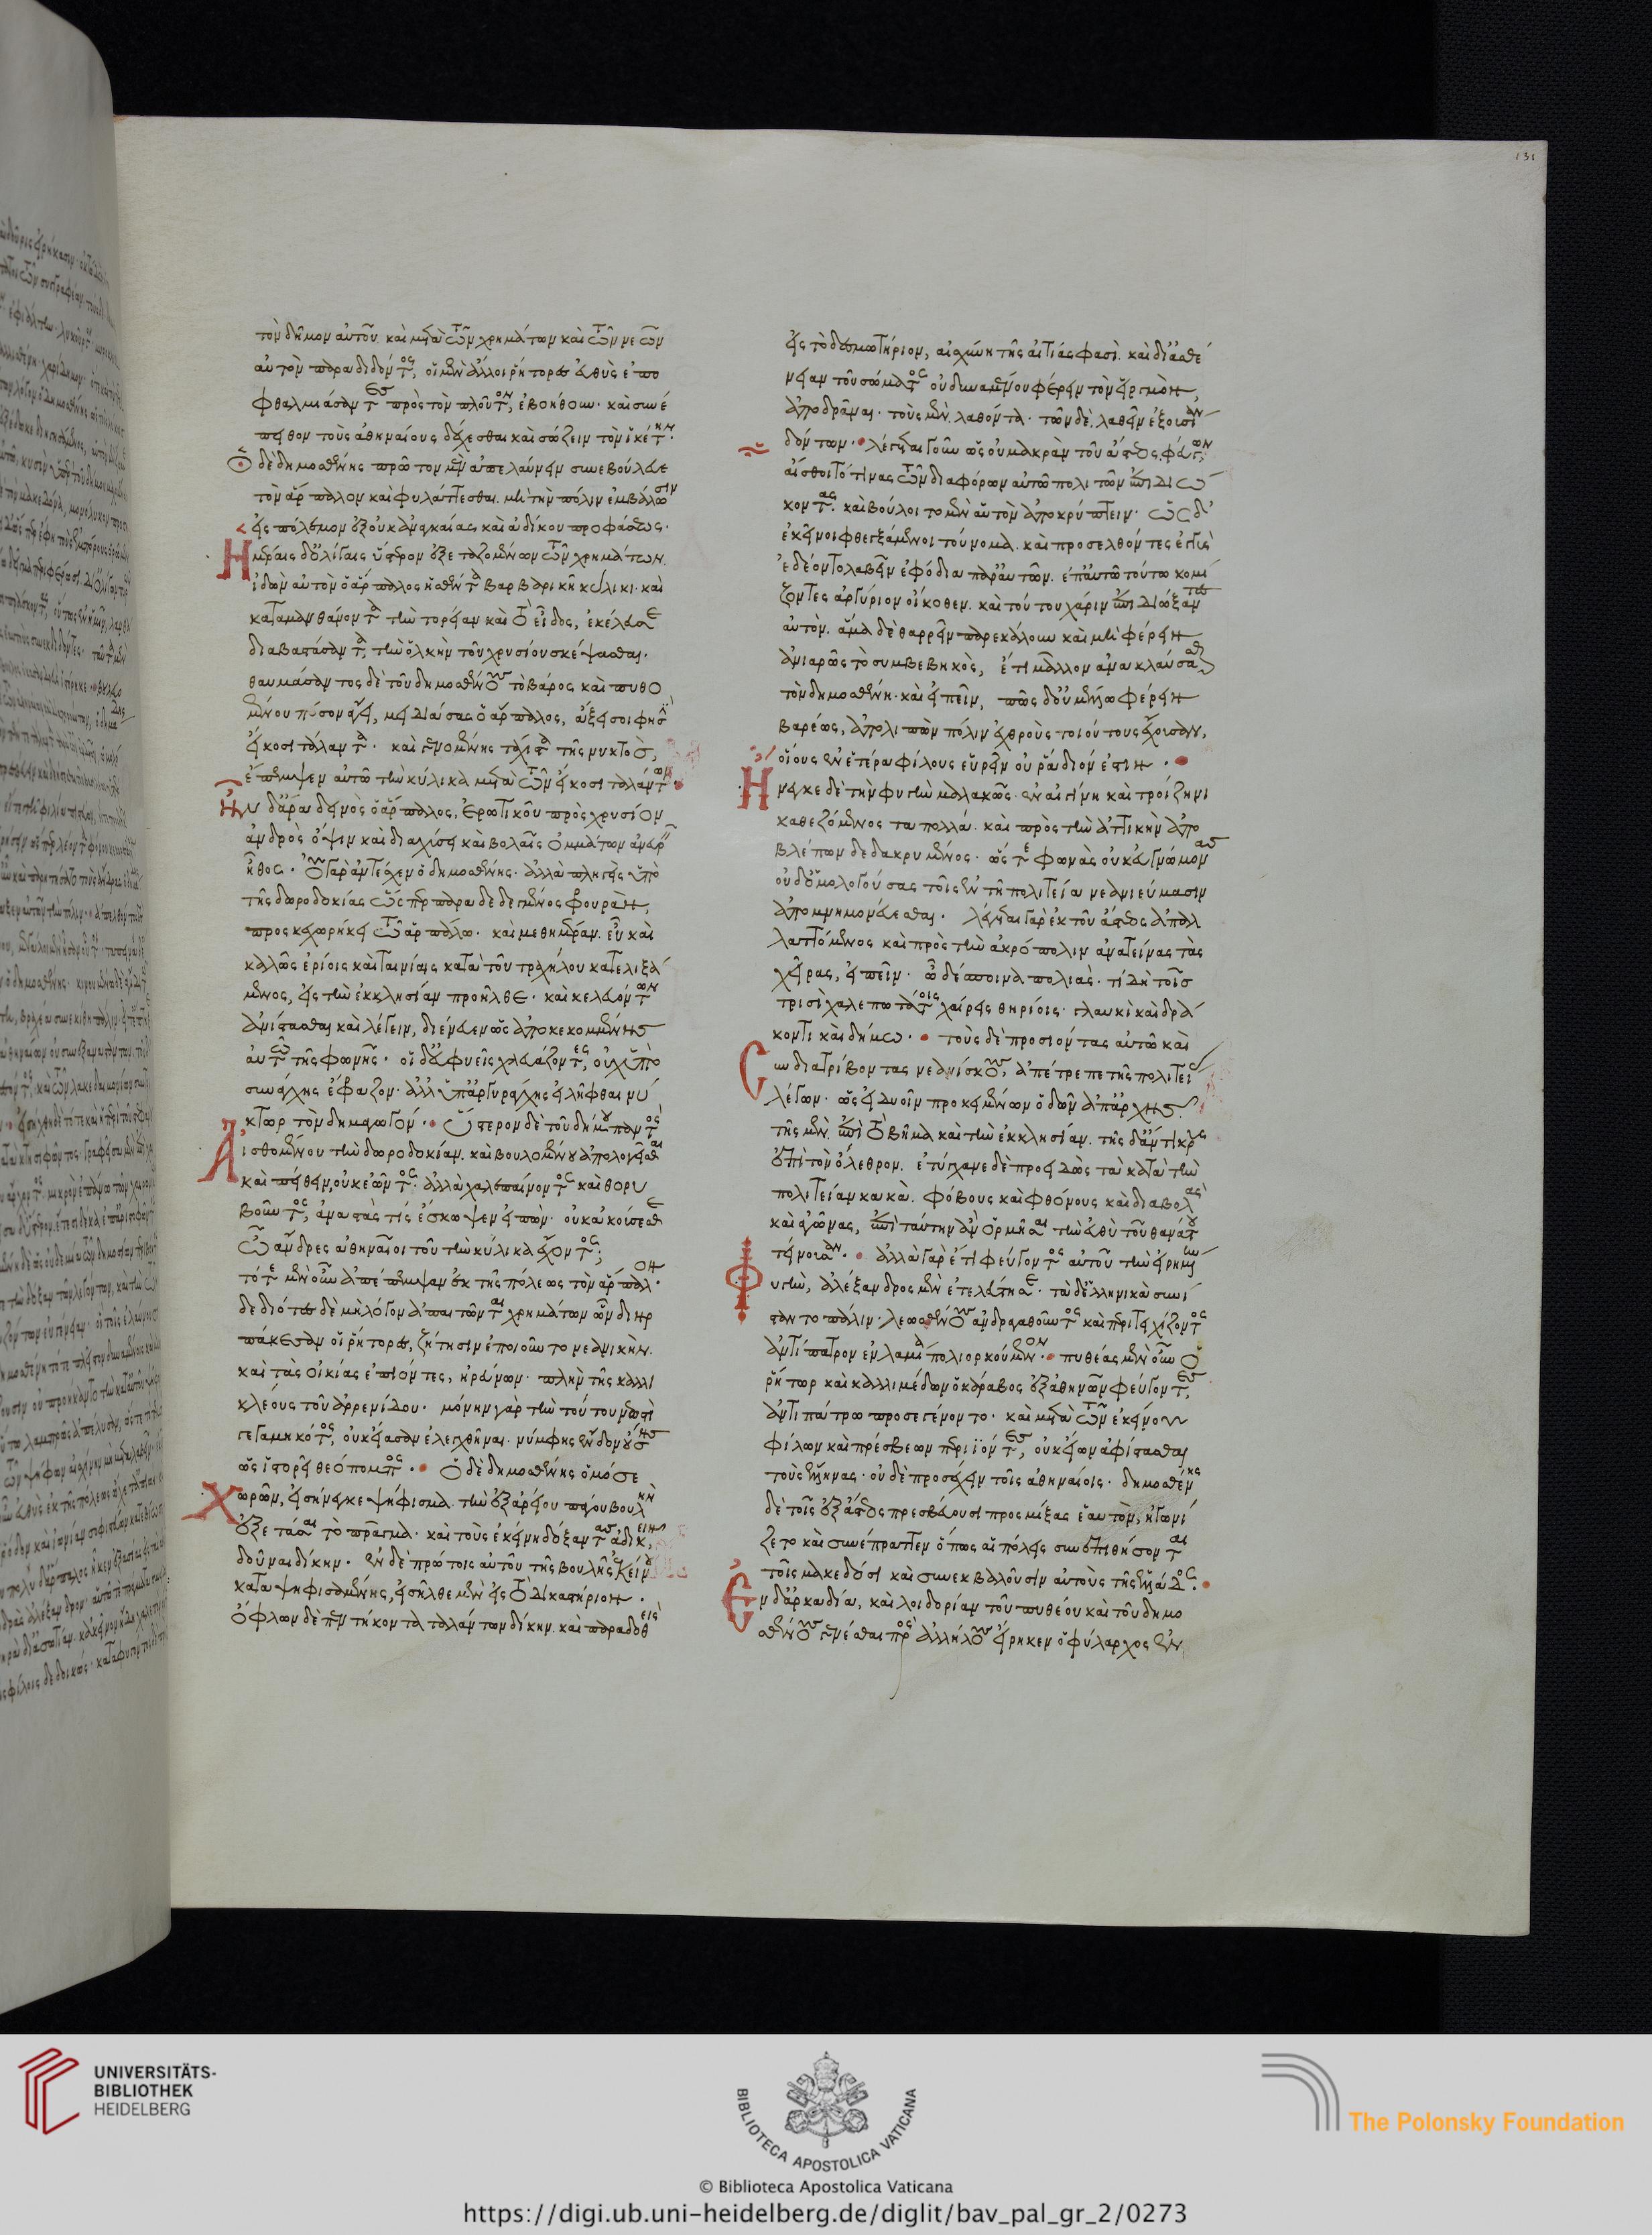 τὸν δῆμον αὐτοῦ· καὶ μετὰ τῶν χρημάτων καὶ τῶν νεῶν
αὐτὸν παραδιδόντος, οἱ μὲν ἄλλοι ῥήτορες εὐθὺς ἐπο
φθαλμιάσαντες πρὸς τὸν πλοῦτον, ἐβοήθουν· καὶ συνέ
πειθον τοὺς ἀθηναίους δέχεσθαι καὶ σώζειν τὸν ἱκέτην·
Ὁ δὲ δημοσθένης πρῶτον μὲν ἀπελαύνειν συνεβούλευε
τὸν ἅρπαλον καὶ φυλάττεσθαι μὴ τὴν πόλιν ἐμβάλωσιν
εἰς πόλεμον ἐξ οὐκ ἀναγκαίας καὶ ἀδίκου προφάσεως·
Ἡμέραις δ' ὀλίγαις ὕστερον ἐξεταζομένων τῶν χρημάτων
ἰδὼν αὐτὸν ὁ ἅρπαλος ἡσθέντα βαρβαρικῇ κύλικι· καὶ
καταμανθάνοντα τὴν τορείαν καὶ τὸ εἶδος, ἐκέλευσε
διαβαστάσαντα, τὴν ὁλκὴν τοῦ χρυσίου σκέψασθαι·
θαυμάσαντος δὲ τοῦ δημοσθένους τὸ βάρος καὶ πυθο
μένου πόσον ἄγει, μειδιάσας ὁ ἅρπαλος, ἄξει σοι φησὶ
εἴκοσι τάλαντα· καὶ γενομένης τάχιστα τῆς νυκτὸς,
ἔπεμψεν αὐτῷ τὴν κύλικα μετὰ τῶν εἴκοσι ταλάντων·
Ἦν δ' ἄρα δεινὸς ὁ ἅρπαλος, ἐρωτικοῦ πρὸς χρυσίον
ἀνδρὸς ὄψιν καὶ διαχύσει καὶ βολαῖς ὀμμάτων ἀνευρεῖν
ἦθος· οὐ γὰρ ἀντέσχεν ὁ δημοσθένης· ἀλλὰ πληγεὶς ὑπὸ
τῆς δωροδοκίας ὥσπερ παραδεδεγμένος φρουρὰν,
προσκεχωρήκει τῷ ἁρπάλῳ· καὶ μεθημέραν εὖ καὶ
καλῶς ἐρίοις καὶ ταινίαις κατὰ τοῦ τραχήλου κατελιξά
μενος, εἰς τὴν ἐκκλησίαν προῆλθε· καὶ κελευόντων
ἀνίστασθαι καὶ λέγειν, διένευεν ὡς ἀποκεκομμένης
αὐτῷ τῆς φωνῆς· οἱ δ' εὐφυεῖς χλευάζοντες, οὐχ ὑπὸ
συνάγχης ἔφραζον· ἀλλ' ὑπ' ἀργυράγχης εἰλῆφθαι νύ
κτωρ τὸν δημαγωγόν· ὕστερον δὲ τοῦ δήμου παντὸς
Αἰσθομένου τὴν δωροδοκίαν· καὶ βουλομένου ἀπολογεῖσθαι
καὶ πείθειν, οὐκ ἐῶντος· ἀλλὰ χαλεπαίνοντος καὶ θορυ
βοῦντος, ἀναστάς τίς ἔσκωψεν εἰπών· οὐκ ἀκούσεσθε
ὦ ἄνδρες ἀθηναῖοι τοῦ τὴν κύλικα ἔχοντος;
τότε μὲν οὖν ἀπέπεμψαν ἐκ τῆς πόλεως τὸν ἅρπαλον·
δεδιότες δὲ μὴ λόγον ἀπαιτῶνται χρημάτων ὧν διηρ
πάκεσαν οἱ ῥήτορες, ζήτησιν ἐποιοῦντο νεανικὴν·
καὶ τὰς οἰκίας ἐπιόντες, ἠρεύνων· πλὴν τῆς καλλι
κλέους τοῦ ἀρρενίδου· μόνην γὰρ τὴν τούτου νεωστὶ
γεγαμηκότος, οὐκ εἴασαν ἐλεγχθῆναι· νύμφης ἔνδον οὔσης
ὡς ἱστορεῖ θεόπομπος· ὁ δὲ δημοσθένης ὁμόσε
Χωρῶν, εἰσήνεγκε ψήφισμα τὴν ἐξ ἀρείου πάγου βουλὴν
ἐξετάσαι τὸ πρᾶγμα· καὶ τοὺς ἐκείνῃ δόξαντας ἀδικεῖν,
δοῦναι δίκην· ἐν δὲ πρώτοις αὐτοῦ τῆς βουλῆς ἐκείνου
καταψηφισαμένης, εἰσῆλθε μὲν εἰς τὸ δικαστήριον·
ὀφλὼν δὲ πεντήκοντα ταλάντων δίκην· καὶ παραδοθεὶς
131
εἰς τὸ δεσμωτήριον, αἰσχύνῃ τῆς αἰτίας φασὶ· καὶ δι' ἀσθέ
νειαν τοῦ σώματος οὐ δυναμένου φέρειν τὸν εἱργμὸν,
ἀποδρᾶναι· τοὺς μὲν λαθόντα· τῶν δὲ λαθεῖν ἐξουσίαν
δόντων· λέγεται γοῦν ὡς οὐ μακρὰν τοῦ ἄστεος φεύγων,
αἴσθοιτό τινας τῶν διαφόρων αὐτῷ πολιτῶν ἐπιδιώ
κοντας· καὶ βούλοιτο μὲν αὑτὸν ἀποκρύπτειν· ὡς δ'
ἐκεῖνοι φθεγξάμενοι τοὔνομα· καὶ προσελθόντες ἐγγὺς
ἐδέοντο λαβεῖν ἐφόδια παρ' αὐτῶν· ἐπ' αὐτῷ τούτῳ κομί
ζοντες ἀργύριον οἴκοθεν· καὶ τούτου χάριν ἐπιδιώξαντες
αὐτὸν· ἅμα δὲ θαρρεῖν παρεκάλουν καὶ μὴ φέρειν
ἀνιαρῶς τὸ συμβεβηκὸς, ἔτι μᾶλλον ἀνακλαύσασθαι
τὸν δημοσθένη· καὶ εἰπεῖν, πῶς δ' οὐ μέλλω φέρειν
βαρέως, ἀπολιπὼν πόλιν ἐχθροὺς τοιούτους ἔχουσαν,
οἵους ἐν ἑτέρᾳ φίλους εὑρεῖν οὐ ῥᾴδιόν ἐστιν·
Ἤνεγκε δὲ τὴν φυγὴν μαλακῶς· ἐν αἰγίνῃ καὶ τροιζῆνι
καθεζόμενος τὰ πολλά· καὶ πρὸς τὴν ἀττικὴν ἀπο
βλέπων δεδακρυμένος· ὥστε φωνὰς οὐκ εὐγνώμονας
οὐδ' ὁμολογούσας τοῖς ἐν τῇ πολιτείᾳ νεανιεύμασιν
ἀπομνημονεύεσθαι· λέγεται γὰρ ἐκ τοῦ ἄστεος ἀπαλ
λαττόμενος καὶ πρὸς τὴν ἀκρόπολιν ἀνατείνας τὰς
χεῖρας, εἰπεῖν· ὦ δέσποινα πολιὰς· τί δὴ τοῖς
τρισὶ χαλεπωτάτοις χαίρεις θηρίοις· γλαυκὶ καὶ δρά
κοντι καὶ δήμῳ· τοὺς δὲ προσιόντας αὐτῷ καὶ
Συνδιατρίβοντας νεανίσκους, ἀπέτρεπε τῆς πολιτείας
λέγων· ὡς εἰ δυοῖν προκειμένων ὁδῶν ἀπ' ἀρχῆς
τῆς μὲν ἐπὶ τὸ βῆμα καὶ τὴν ἐκκλησίαν· τῆς δ' ἄντικρυς
ἐπὶ τὸν ὄλεθρον· ἐτύγχανε δὲ προειδὼς τὰ κατὰ τὴν
πολιτείαν κακὰ· φόβους καὶ φθόνους καὶ διαβολὰς
καὶ ἀγῶνας, ἐπὶ ταύτην ἂν ὁρμῆσαι τὴν εὐθὺ τοῦ θανάτου
τείνουσαν· ἀλλὰ γὰρ ἔτι φεύγοντος αὐτοῦ τὴν εἰρημένην
Φυγὴν, ἀλέξανδρος μὲν ἐτελεύτησε· τὰ δ' ἑλληνικὰ συνί
στατο πάλιν· λεωσθένους ἀνδραγαθοῦντος καὶ περιτειχίζοντος
ἀντίπατρον ἐν λαμίᾳ πολιορκούμενον· πυθέας μὲν οὖν ὁ
ῥήτωρ καὶ καλλιμέδων ὁ κάραβος ἐξ ἀθηνῶν φεύγοντες,
ἀντιπάτρῳ προσεγένοντο· καὶ μετὰ τῶν ἐκείνου
φίλων καὶ πρέσβεων περιϊόντες, οὐκ εἴων ἀφίστασθαι
τοὺς ἕλληνας· οὐδὲ προσέχειν τοῖς ἀθηναίοις· δημοσθένης
δὲ τοῖς ἐξ ἄστεος πρεσβεύουσι προσμίξας ἑαυτὸν, ἠγωνί
ζετο καὶ συνέπραττεν ὅπως αἱ πόλεις συνεπιθήσονται
τοῖς μακεδόσι καὶ συνεκβαλοῦσιν αὐτοὺς τῆς ἑλλάδος·
Ἐν δ' ἀρκαδίᾳ, καὶ λοιδορίαν τοῦ πυθέου καὶ τοῦ δημο
σθένους γενέσθαι πρὸς ἀλλήλους εἴρηκεν ὁ φύλαρχος ἐν
UNIVERSITÄTS-
BIBLIOTHEK
HEIDELBERG
BIBLIOTECA APOSTOLICA VATICANA
The Polonsky Foundation
© Biblioteca Apostolica Vaticana
https://digi.ub.uni-heidelberg.de/diglit/bav_pal_gr_2/0273